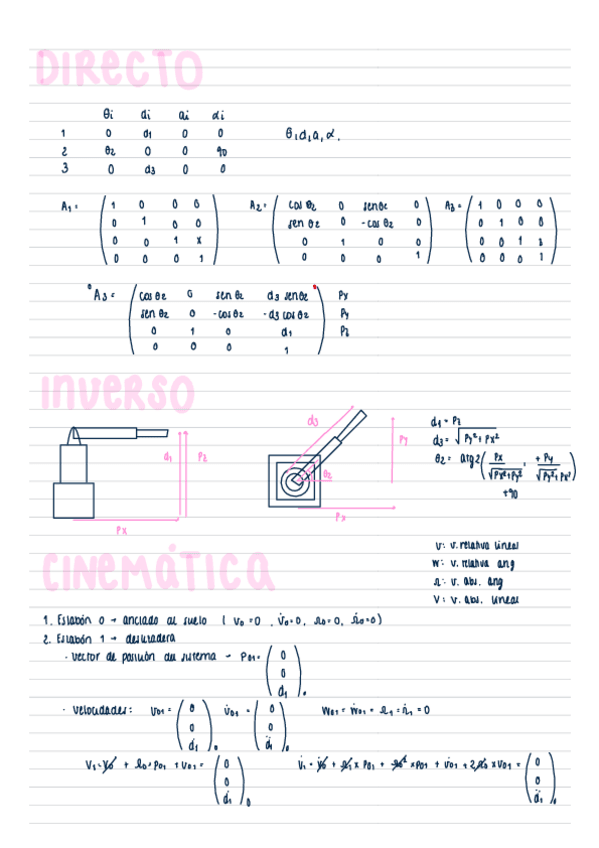 DIRECTO
θi di ai αi
1 0 d1 0 0 θi di ai α.
2 θ2 0 0 90
3 0 d3 0 0
A1 = A2 = A3 =
1 0 0 0 cos θ2 0 sen θ2 0 1 0 0 0
0 1 0 0 sen θ2 0 -cos θ2 0 0 1 0 0
0 0 1 x 0 1 0 0 0 0 1
0 0 0 1 0 0 0 1 0 0 0 1
⁰A3 = cos θ2 0 sen θ2 d3 senθ2 Px
sen θ2 0 -cos θ2 -d3 cos θ2 Py
0 1 0 d1 Pz
0 0 0 1
INVERSO
d1 Pz Px
d3 θ2 Py Px
d1 = Pz
d3 = √Py²+Px²
θ2 = arg2(Px/√Px²+Py², +Py/√Py²+Px²)
+90
CINEMÁTICA
v: v. relativa lineal
w: v. relativa ang
Ω: v. abs. ang
V: v. abs. lineal
1. Eslabón 0 → anclado al suelo ( V0=0 , V̇0=0, Ω0=0, Ω̇0=0)
2. Eslabón 1 → deslizadera
· vector de posición del sistema → P01 = (0 0 d1)0
· velocidades: v01 = (0 0 ḋ1)0 v̇01 = (0 0 d̈1)0 W01 = Ẇ01 = Ω1 = Ω̇1 = 0
V1 = V0 + Ω0 × P01 + v01 = (0 0 ḋ1)0 V̇1 = V̇0 + Ω̇1 × P01 + Ω0² × P01 + v̇01 + 2Ω0 × v01 = (0 0 d̈1)0